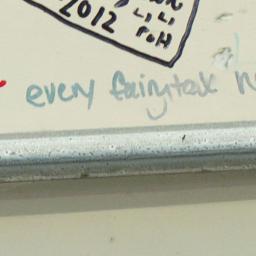 2012 LiLi
roH
every fairytale